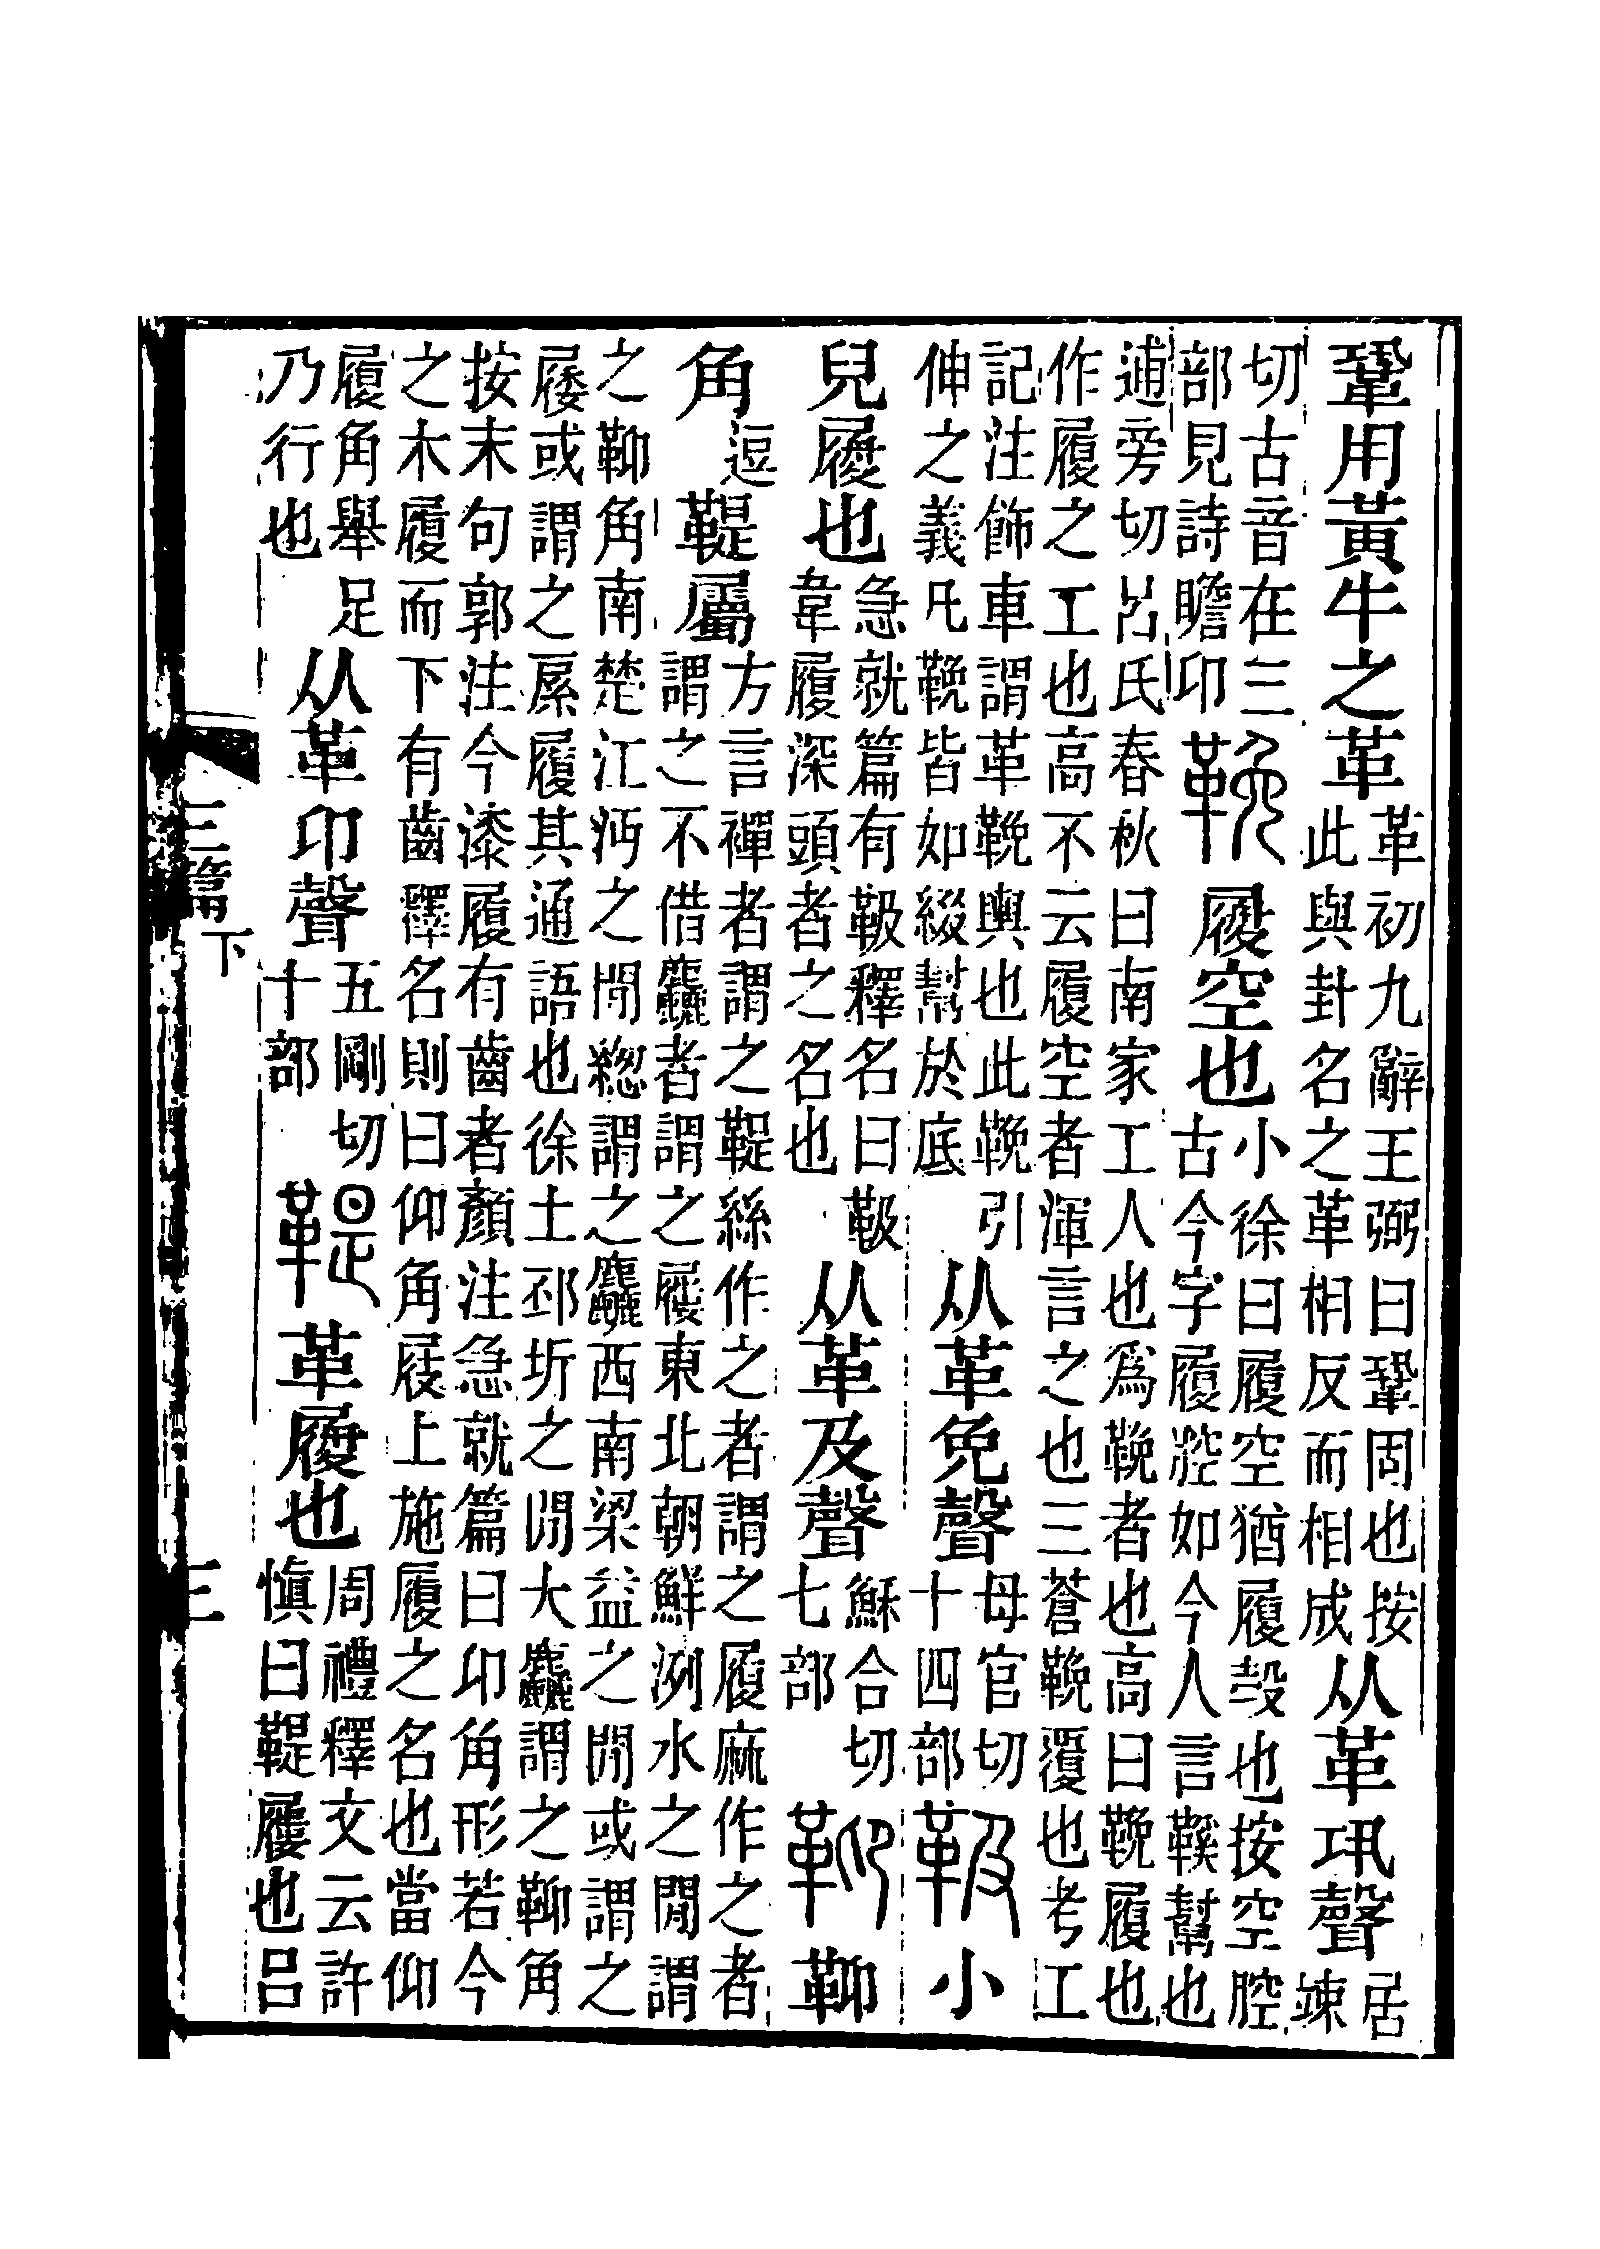 鞏用黃牛之革革初九辭王弼曰鞏固也按此與卦名之革相反而相成从革巩聲居竦
切古音在三部見詩瞻卬鞔履空也小徐曰履空猶履㱿也按空腔古今字履腔如今人言鞵幫也
逋旁切呂氏春秋曰南家工人也爲鞔者也高曰鞔履也作履之工也高不云履空者渾言之也三蒼鞔覆也考工
記注飾車謂革鞔輿也此鞔引伸之義凡鞔皆如綴幫於底从革免聲母官切十四部靸小
兒履也急就篇有靸釋名曰靸韋履深頭者之名也从革及聲穌合切七部䩕䩕
角逗鞮屬方言襌者謂之鞮絲作之者謂之履麻作之者謂之不借麤者謂之屨東北朝鮮洌水之閒謂
之䩕角南楚江沔之閒緫謂之麤西南梁益之閒或謂之屨或謂之㞏履其通語也徐土邳圻之閒大麤謂之䩕角
按末句郭注今漆履有齒者顏注急就篇曰卬角形若今之木履而下有齒釋名則曰仰角屐上施履之名也當仰
履角舉足乃行也从革卬聲五剛切十部鞮革履也周禮釋文云許愼曰鞮屨也呂
三篇下 三